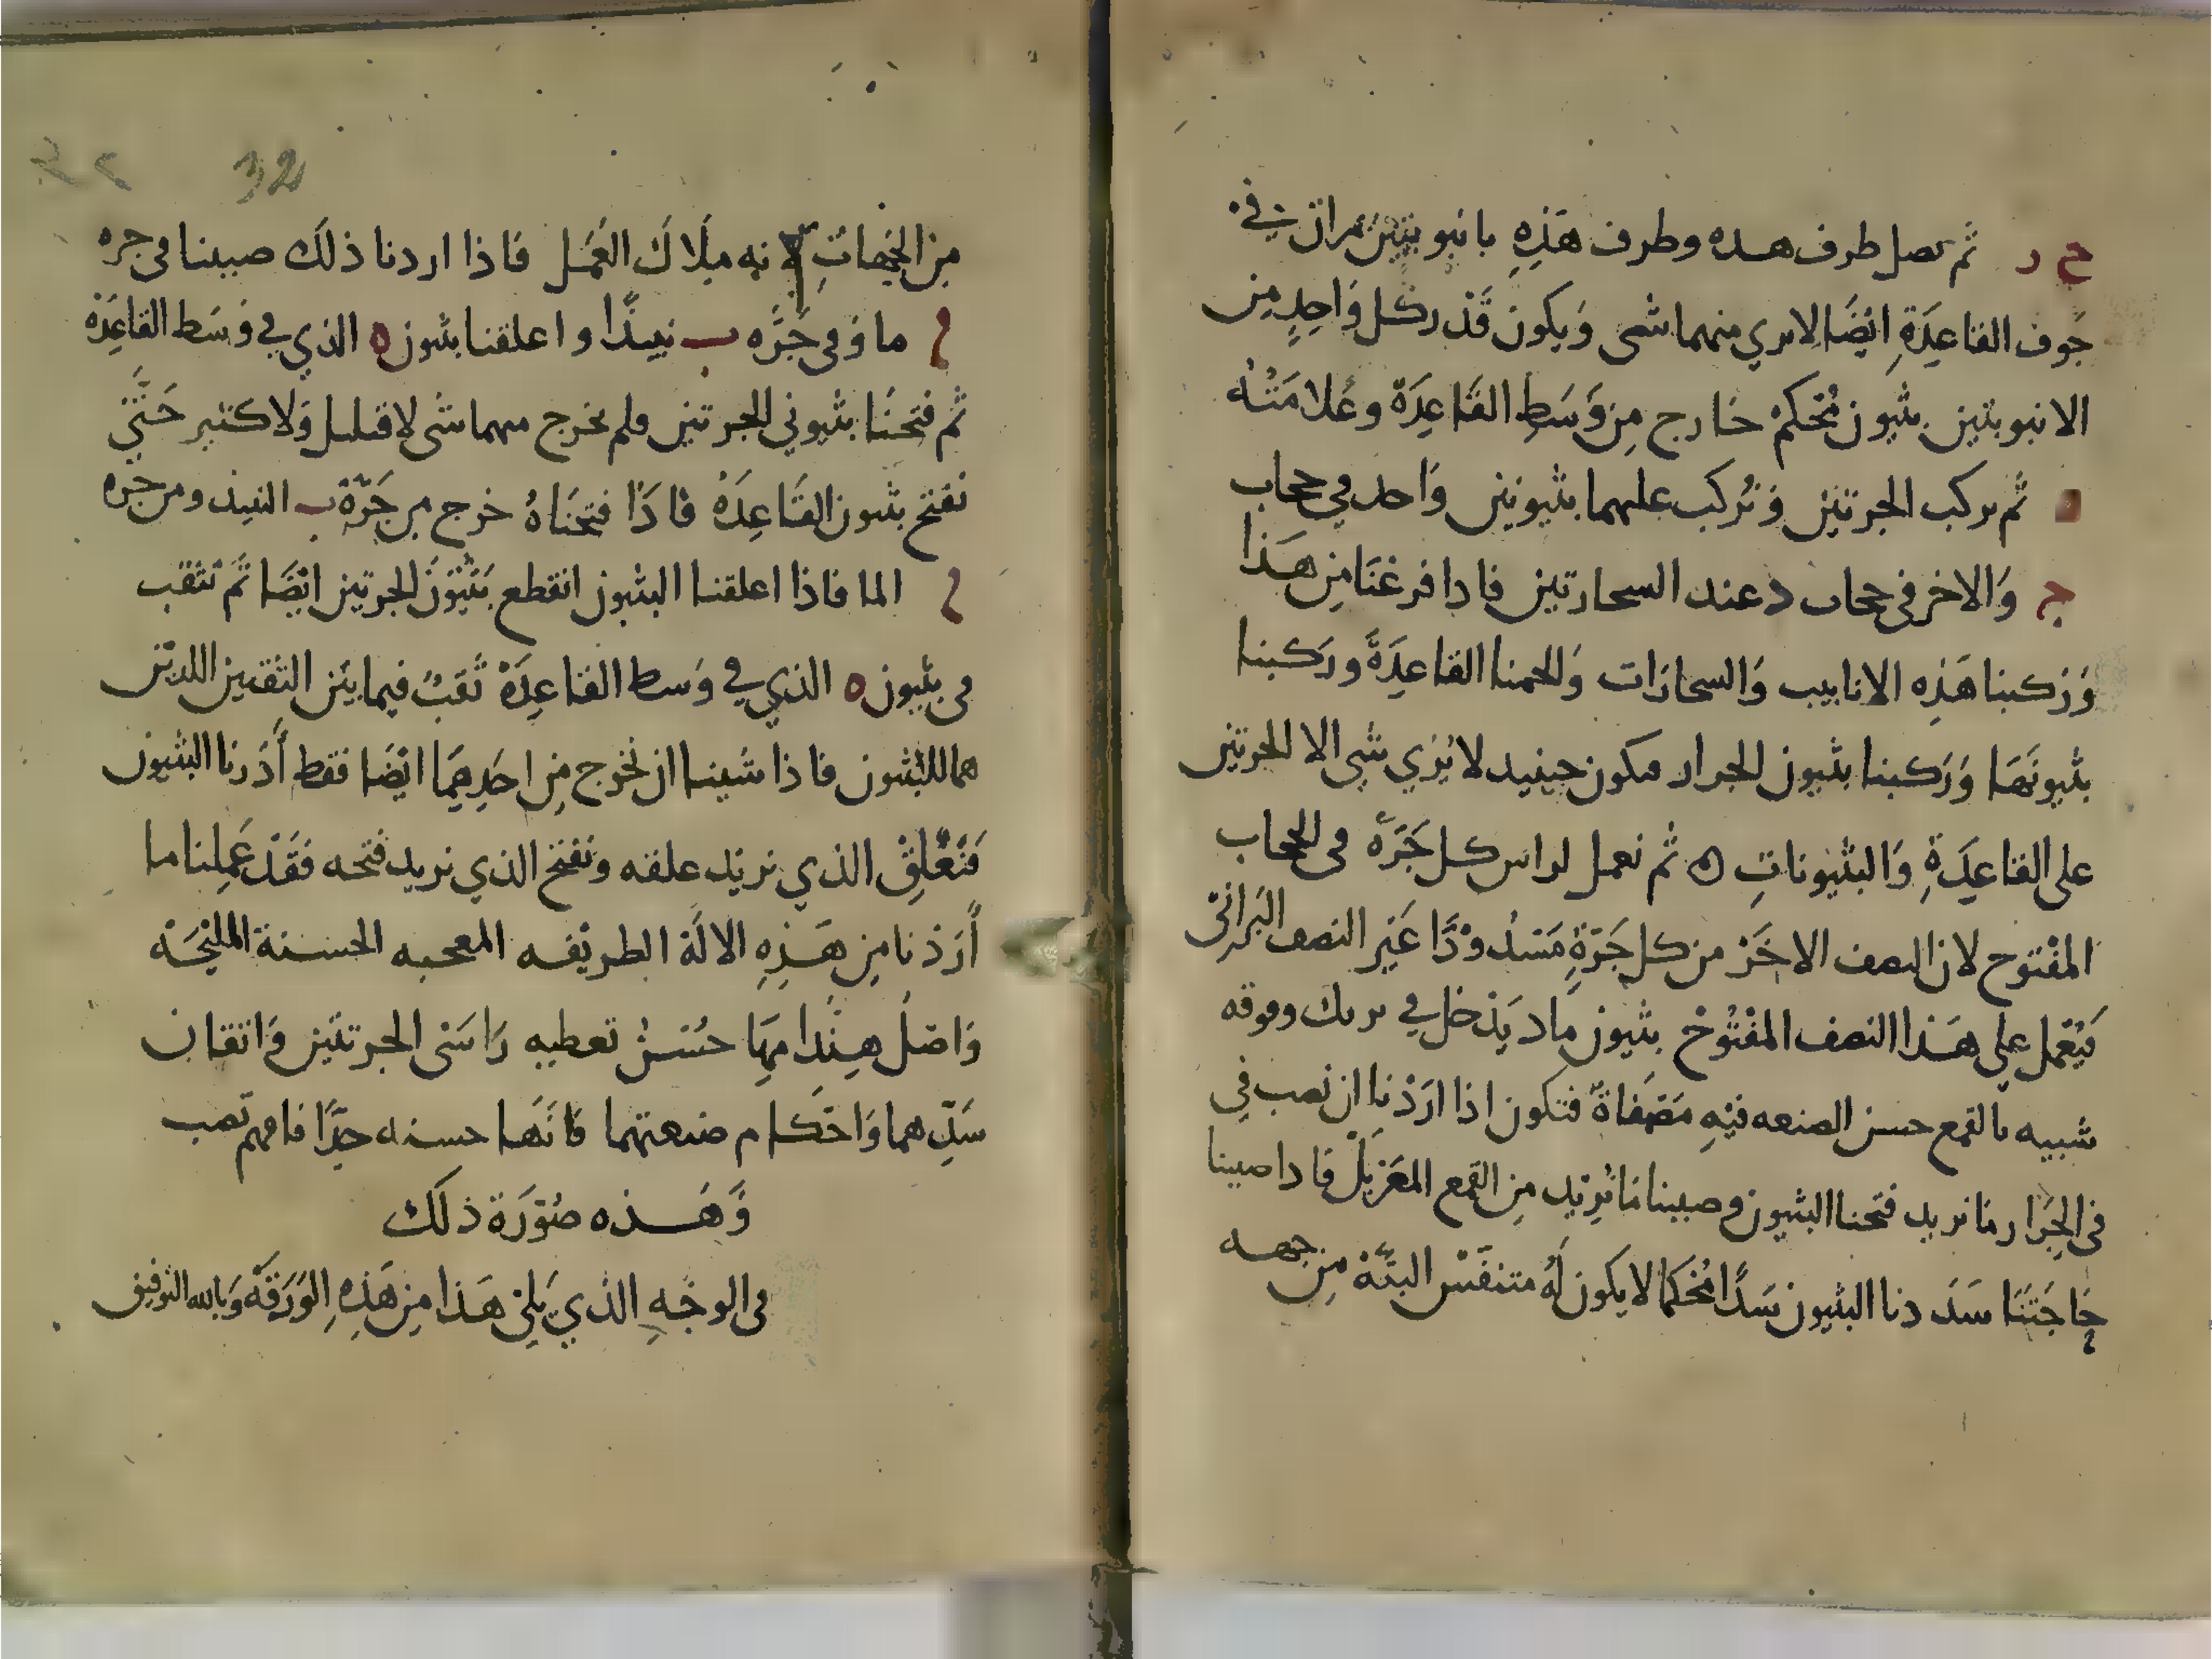 ح ر ثم نصل طرف هده وطرف هَذِهِ بانبوبتين تمران في
جَوف القاعِدَةِ ايْضًا لا يري منهما شى وَيكون قَدْ ركل وَاحِدٍ مِن
الانبوبتين بثيون مُحْكمْ خارج مِن وَسَطِ القَاعِدَة وعَلامَتُهُ
ه ثم نركب الجرتين وَنُركب عليهما بثيونين وَاحد في حجاب
ج وَالاخر في حجاب د عند السحارتين فادا فرغنَا مِن هَذا
وَرَكبنا هَذِه الانابيب وَالسحارَات وَلحمنا القاعِدَةَ ورَكبنا
بثيونَهَا وَرَكبنا بثيون الجرار فيكون حينيد لا يُرَي شي الا الجرتين
على القاعِدَةِ وَالبثيوناتِ ه ثم نعمل لراس كل جَرَّه في الحجاب
المفْتوح لان النصف الاخَرْ من كل جَرَّةٍ مَسْدُوْدًا غَيْر النصف البَراني
فيُعْمل علي هَذا النصف المفْتُوْحْ بثيون مادَ يَدْخل في بربك وفوقه
شبيه بالقمع حسن الصنعه فيْهِ مَصْفاةٌ فتكون اذا ارَدْنا ان نصب في
في الجِرَار مَا نريد فتحنا البثيون وصببنا مَا نُرِيْد مِن القمع المغَرْبَلْ فادا صببنا
حَاجَتَنَا سَدَدنا البثيون سَدًا مُحْكمًا لا يكون لهُ متنفَسْ البتَّةْ مِن جهه
32
من الجهاتِ لانه ملَاكَ العَمَل فاذا اردنا ذلكَ صببنا في جره
ا ما وَفي جَرَّه ب نبيدًا واعلقنا بثيون ه الذي في وَسَط القاعِدَةْ
ثم فتحنَا بثيوني الجرتين فلم يخرج منهما شى لا قليل وَلا كثير حَتَّي
نفتح بثيون القَاعِدَةْ فاذَا فتحنَاهُ خرج من جَرَّةْ ب النبيذ ومن جره
ا الما فاذا اعلقنا البثيون انقطع بَثْيُوْنَ الجرتين ايْضًا ثم نثقب
في بثيون ه الذي في وَسط القاعِدَةْ ثَقبٌ فيما بيْن الثقبين اللديْن
هما للبثيون فاذا شينا ان نخرج مِن احَدِهِمَا ايْضًا فقط أدَرنا البثيون
فنَعْلِقْ الذي نريْد علقه ونفتح الذي نريد فتحه فقَدْ عَمِلنا ما
أرَدْنا مِن هَذِهِ الالَة الطريْفه المعجبه الحسنة المليْحَة
وَاصْل هِنْدامِهَا حُسْنُ تعطيه رَاسَيْ الجرتيْن وَاتقان
سَدِّهما وَاحَكام صنعتهما فانَهَا حسنه جِدًا فافهم تصب
وَهَذه صُوْرَة ذلكَ
في الوجْهِ الذي يَلِيْ هَذا مِن هَذِهِ الوَرَقَةْ وَبالله التوفيق